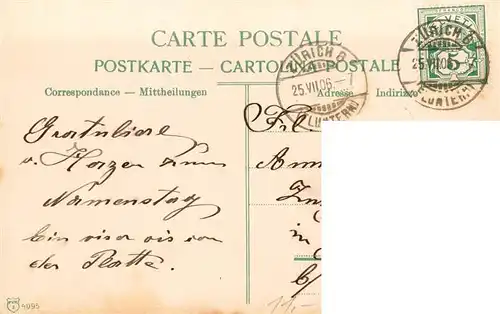 CARTE POSTALE
POSTKARTE – CARTOLINA POSTALE
Correspondance – Mittheilungen
Adresse Indirizzo
ZÜRICH 8
25.VII.06.–7
(FLUNTERN)
HELVETIA
5
ZÜRICH 8
25.VII.06
(FLUNTERN)
Gratuliere
v. Herzen zum
Namenstag
Dein vis a vis von
der Platte.
in
4095